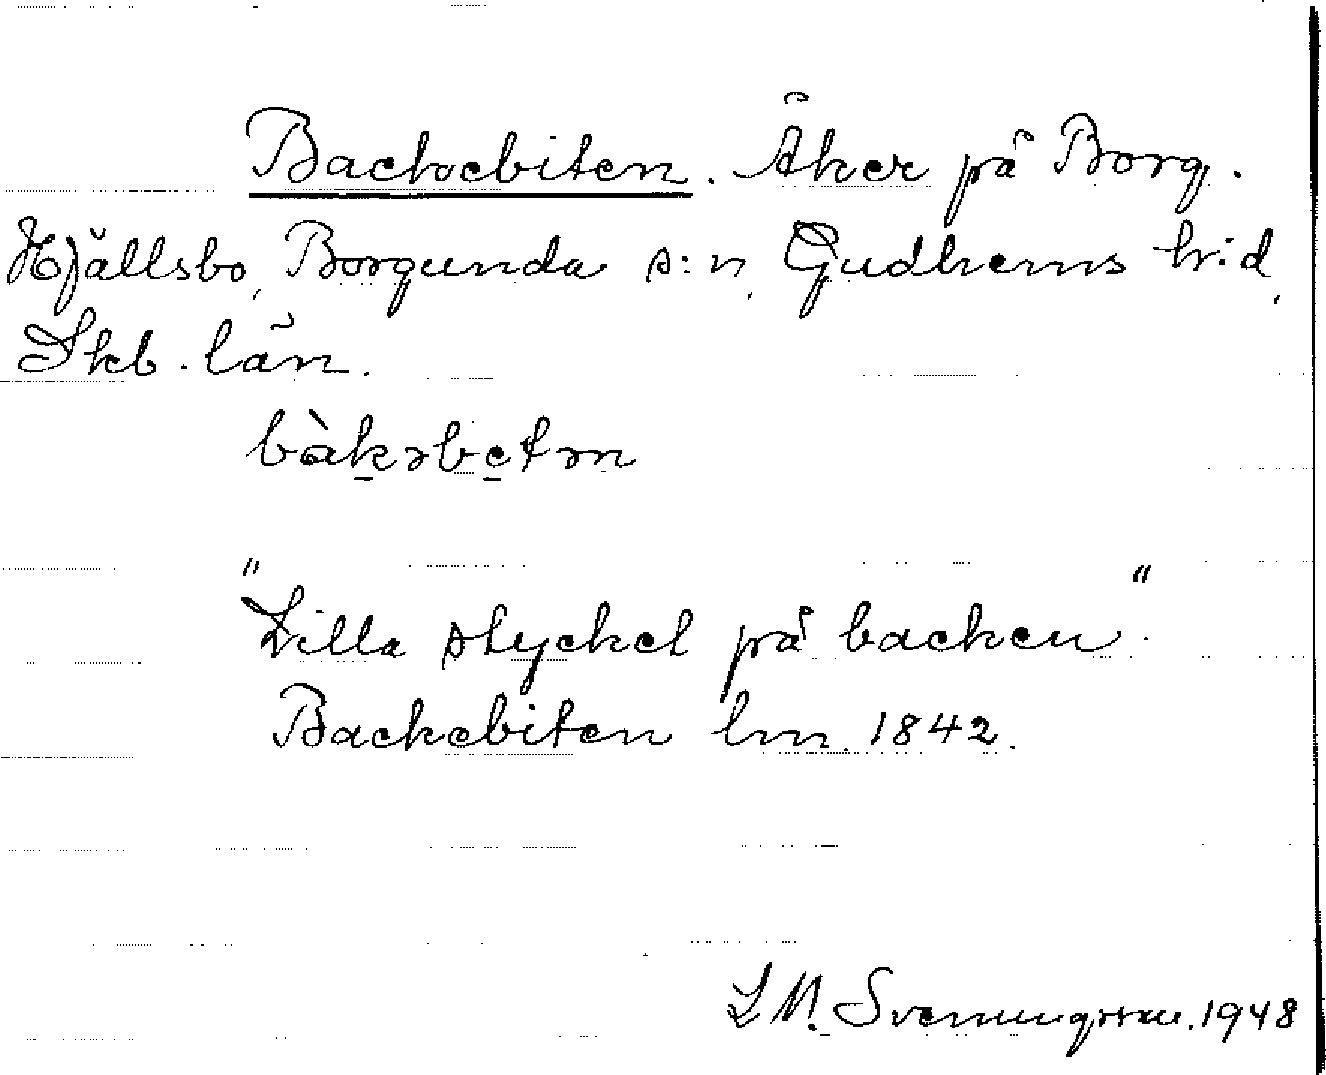 Backebiten. Åker på Borg.
Hjällsbo, Borgunda s:n, Gudhems h:d,
Skb. län.
bàkəbetən
"Lilla stycket på backen".
Backebiten lm. 1842.
L M. Svenungsson. 1948